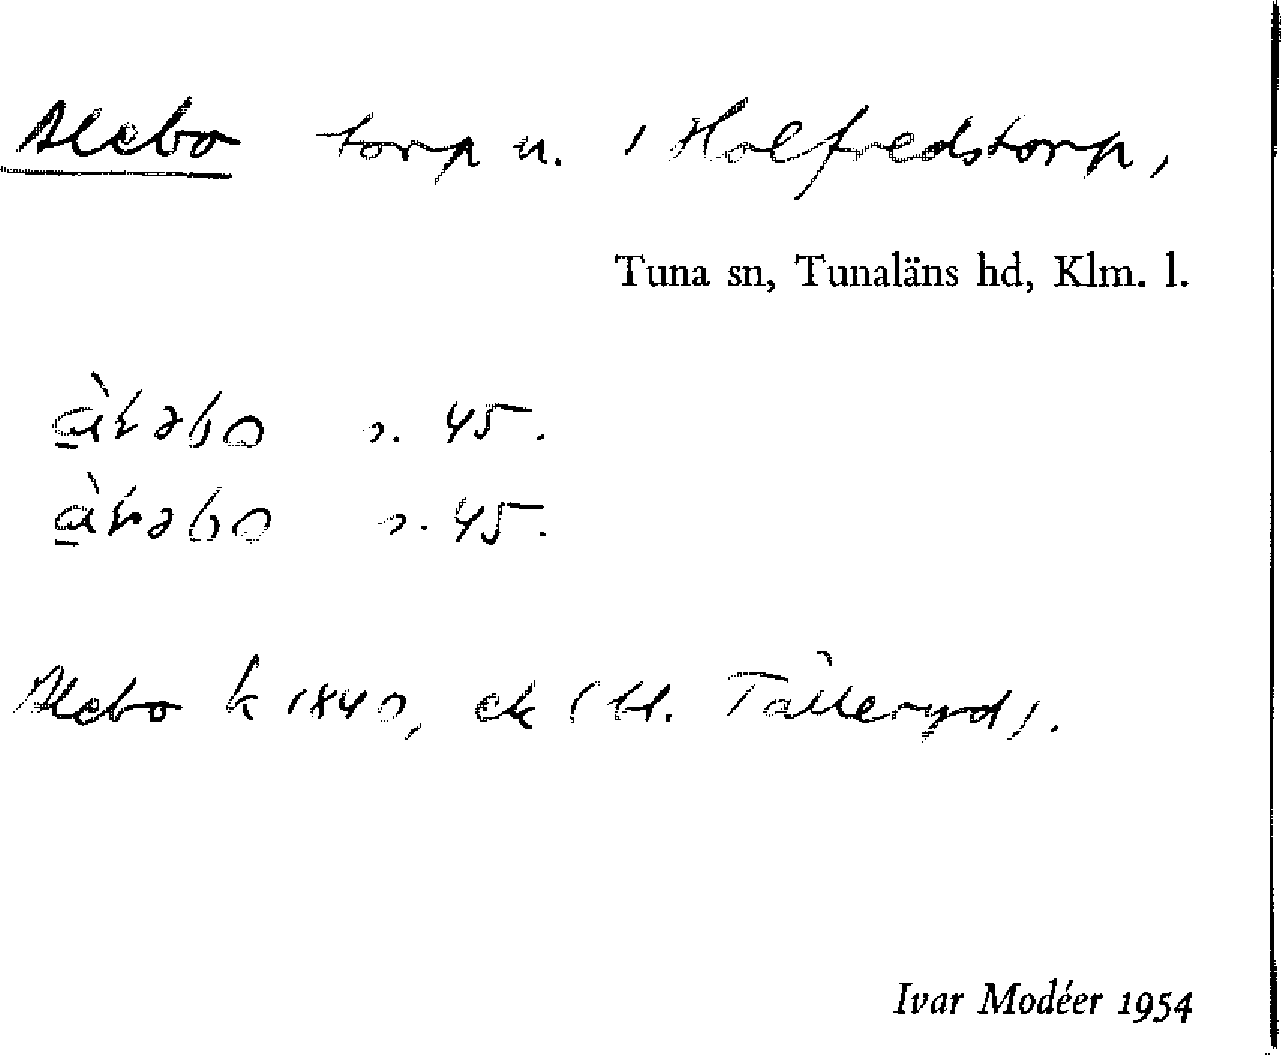 Alebo torp u. / Holfredstorp,
Tuna sn, Tunaläns hd, Klm. l.
s. 45.
s. 45.
Alebo k 1840, ek (bl. Tälleryd).
Ivar Modéer 1954